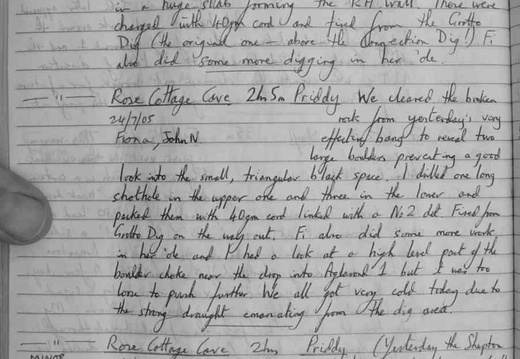 in a huge slab forming the RH wall. There were
charged with 40gm cord and fired from the Grotto
Dig (the original one - above the Connection Dig!). Fi
also did some more digging in her 'ole.
— " — Rose Cottage Cave 2h5m Priddy We cleared the broken
24/7/05 rock from yesterday's very
Fiona, John N effective bang to reveal two
large boulders preventing a good
look into the small, triangular black space. I drilled one long
shothole in the upper one and three in the lower and
packed them with 40gm cord linked with a No2 det. Fired from
Grotto Dig on the way out. Fi also did some more work
in her 'ole and I had a look at a high level part of the
boulder choke near the drop into Aglarond 1 but it was too
loose to push further. We all got very cold today due to
the strong draught emanating from the dig area.
— " — Rose Cottage Cave 2hrs Priddy (Yesterday the Shepton